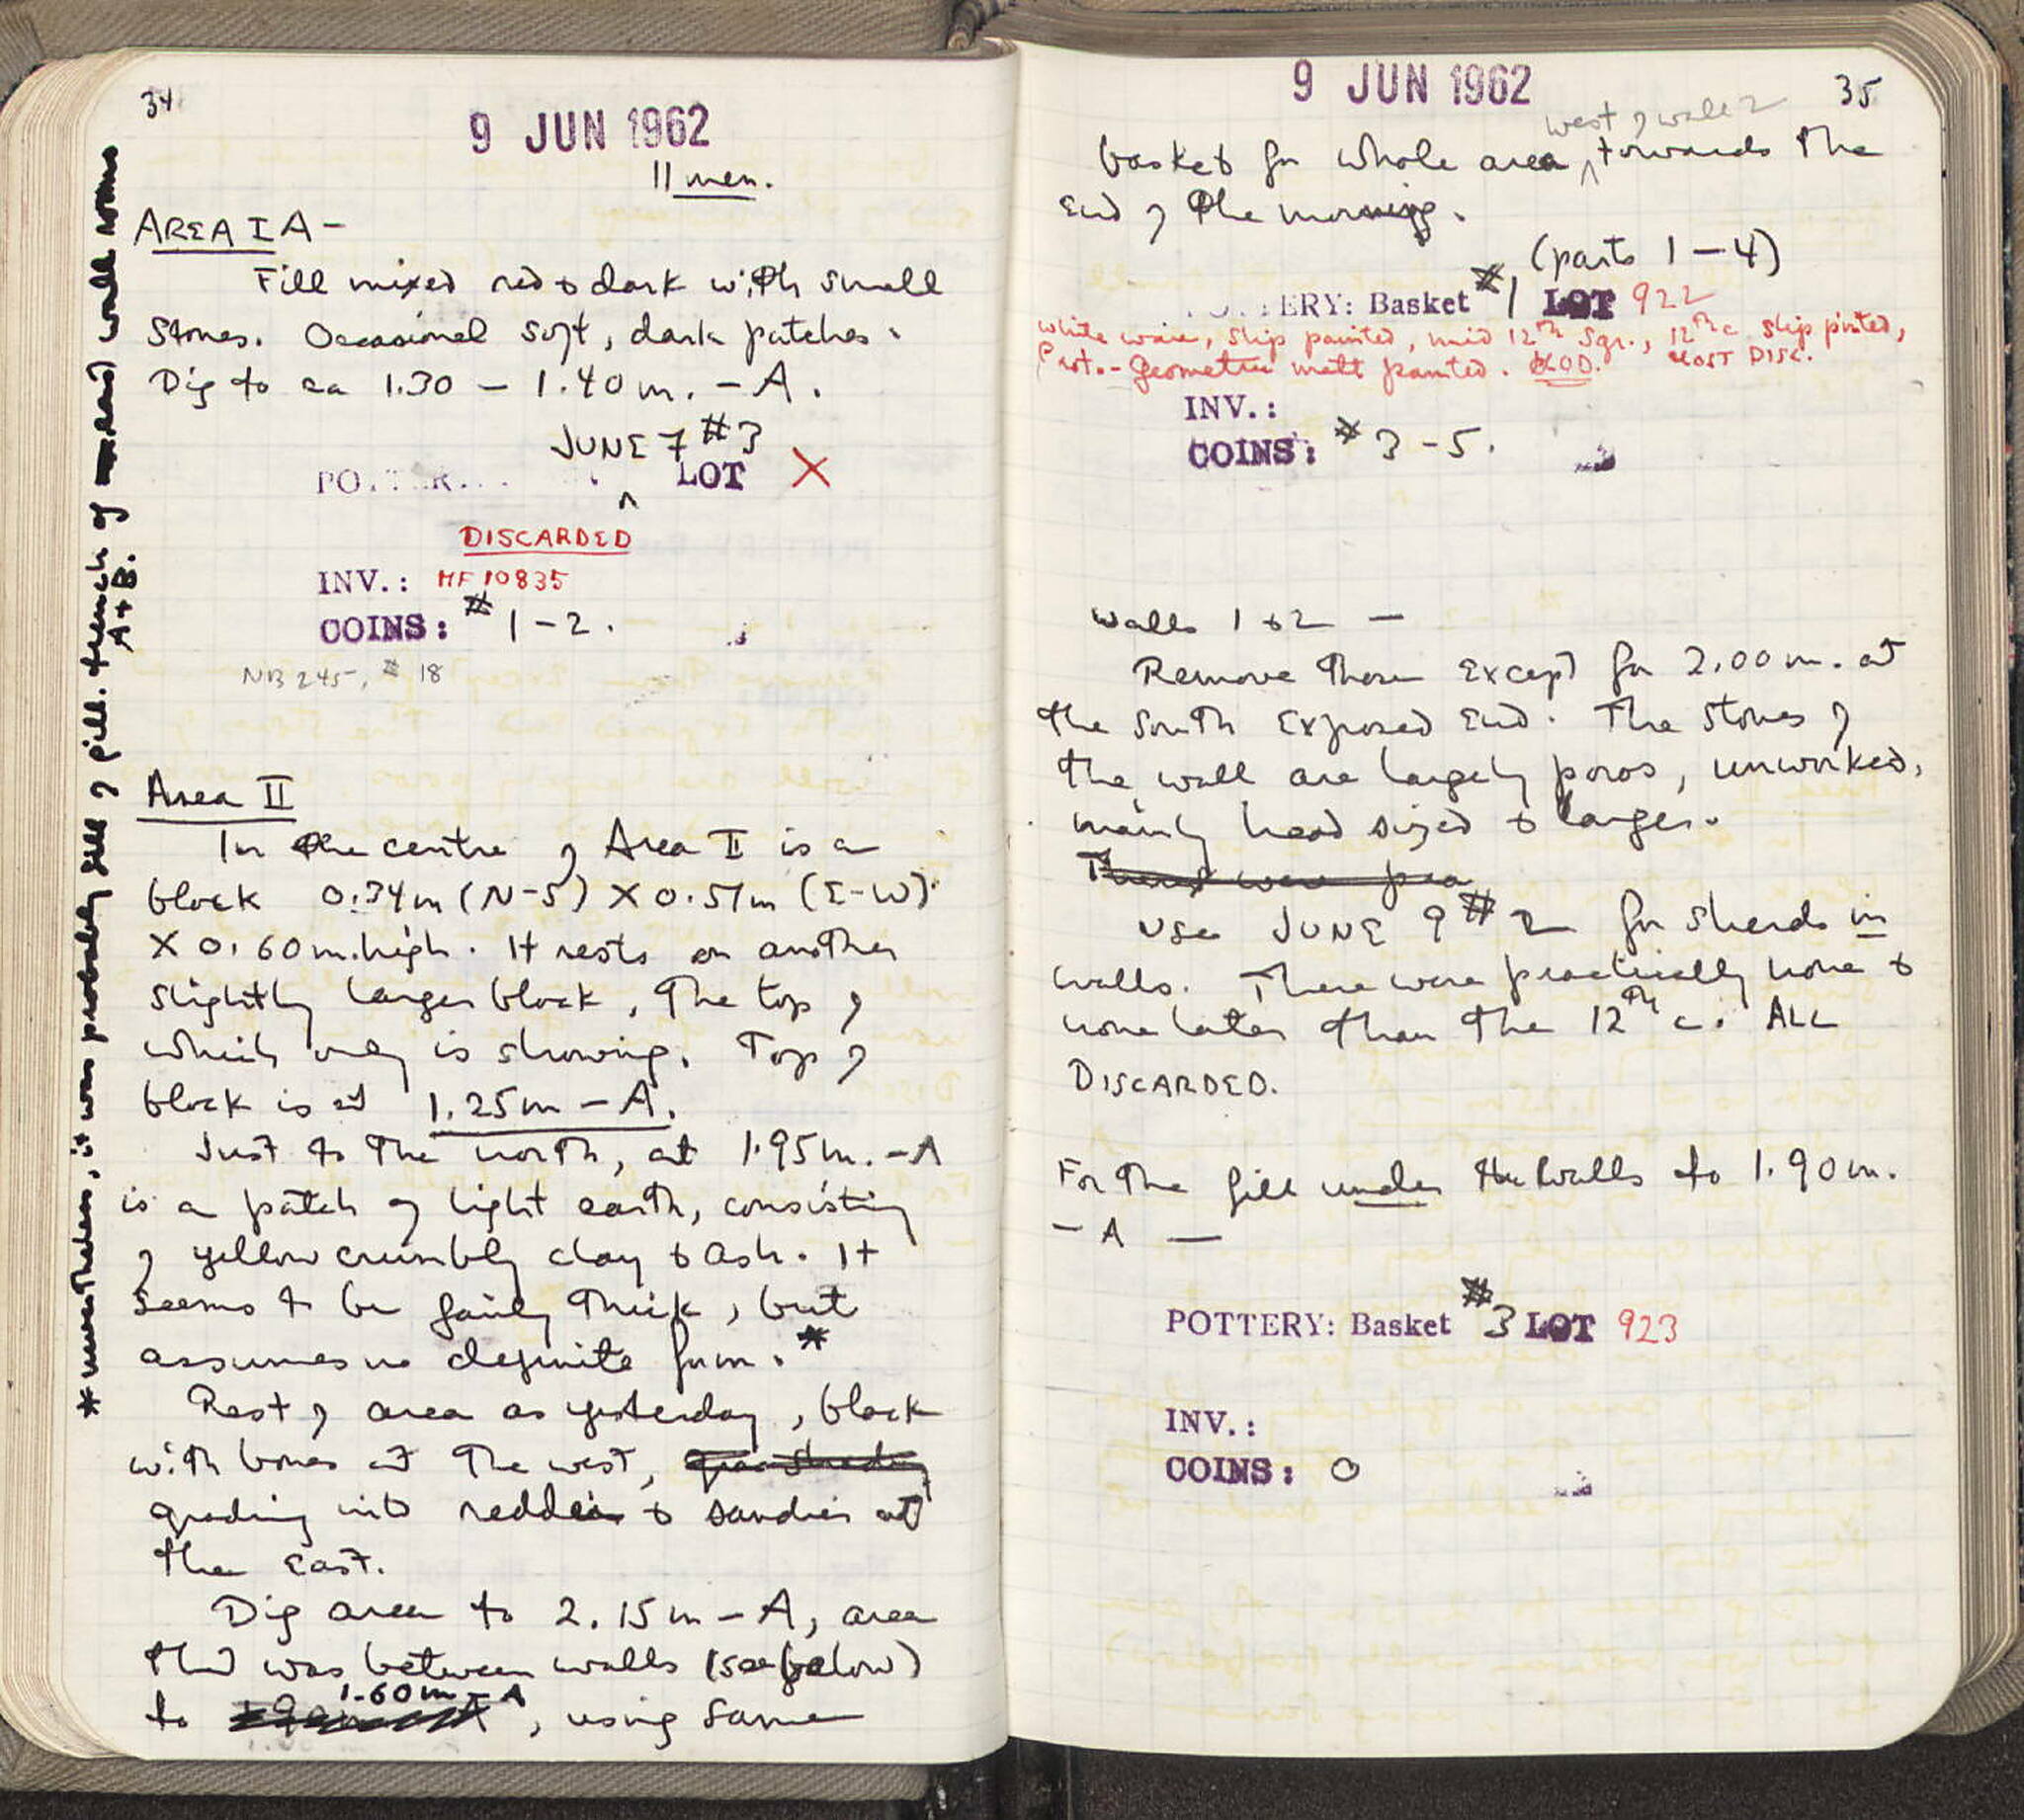 34
9 JUN 1962
11 men.
AREA I A -
Fill mixed red & dark with small
stones. Occasional soft, dark patches.
Dig to ca 1.30 - 1.40 m. - A.
JUNE 7 #3
LOT X
DISCARDED
INV.: MF 10835
COINS: # 1-2.
NB 245, # 18
Area II
In the centre of Area II is a
block 0.34m (N-S) X 0.51m (E-W)
X 0.60 m. high. It rests on another
slightly larger block, the top of
which only is showing. Top of
block is at 1.25m - A.
Just to the north, at 1.95m. - A
is a patch of light earth, consisting
of yellow crumbly clay & ash. It
seems to be fairly thick, but
assumes no definite form. *
Rest of area as yesterday, black
with bones at the west,
grading into redder & sandier at
the east.
Dig area to 2.15m - A, area
that was between walls (see below)
to 1.60m - A, using same
* nevertheless, it was probably fill of pill. trench of wall rooms
A + B.
9 JUN 1962
35
basket for whole area west of wall 2 towards the
end of the morning.
(parts 1-4)
POTTERY: Basket #1 LOT 922
White ware, slip painted, mid 12th sgr., 12th c. slip pinted,
Prot.-Geometric matt painted. MOST DISC.
INV.:
COINS: # 3-5.
Walls 1 & 2 -
Remove them except for 2.00m. at
the south exposed end. The stones of
the wall are largely poros, unworked,
mainly head sized & larger.
There were
Use JUNE 9 #2 for sherds in
walls. There were practically none &
none later than the 12th c. ALL
DISCARDED.
For the fill under the walls to 1.90m.
- A -
POTTERY: Basket #3 LOT 923
INV.:
COINS: 0